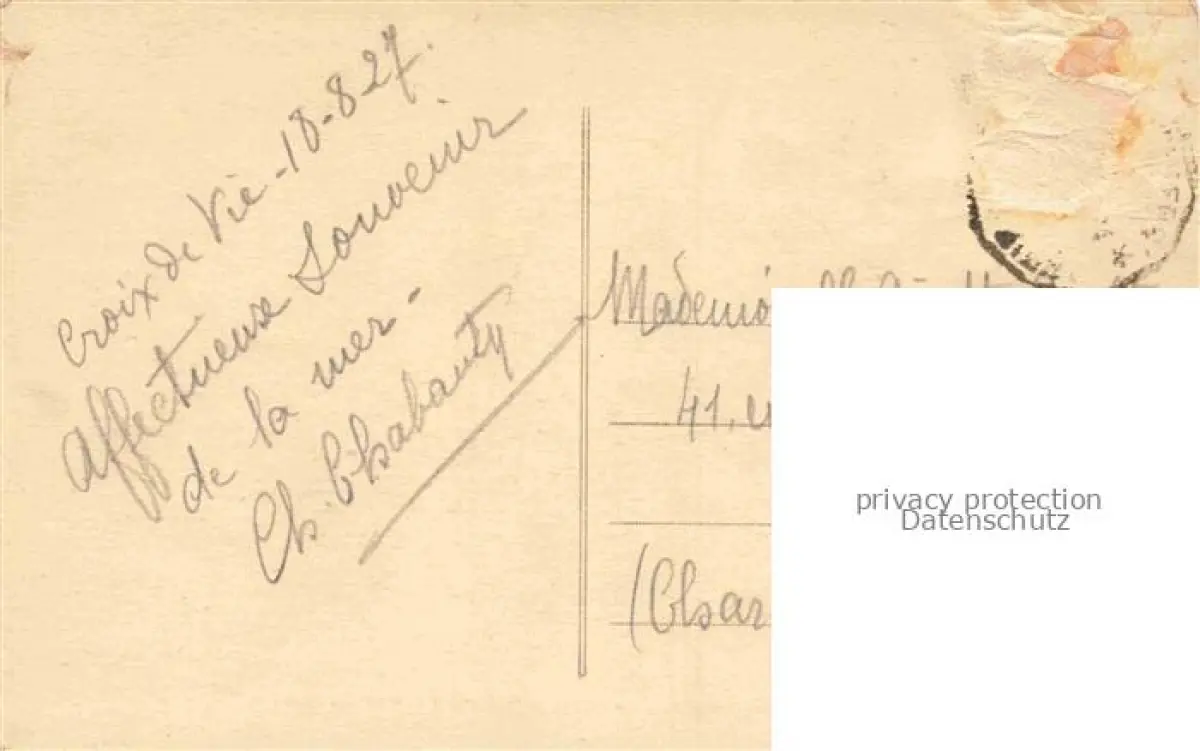 Croix de Vie - 18-8 27.
Affectueux Souvenir
de la mer -
Ch. Chabauty
41,
(Char
privacy protection
Datenschutz